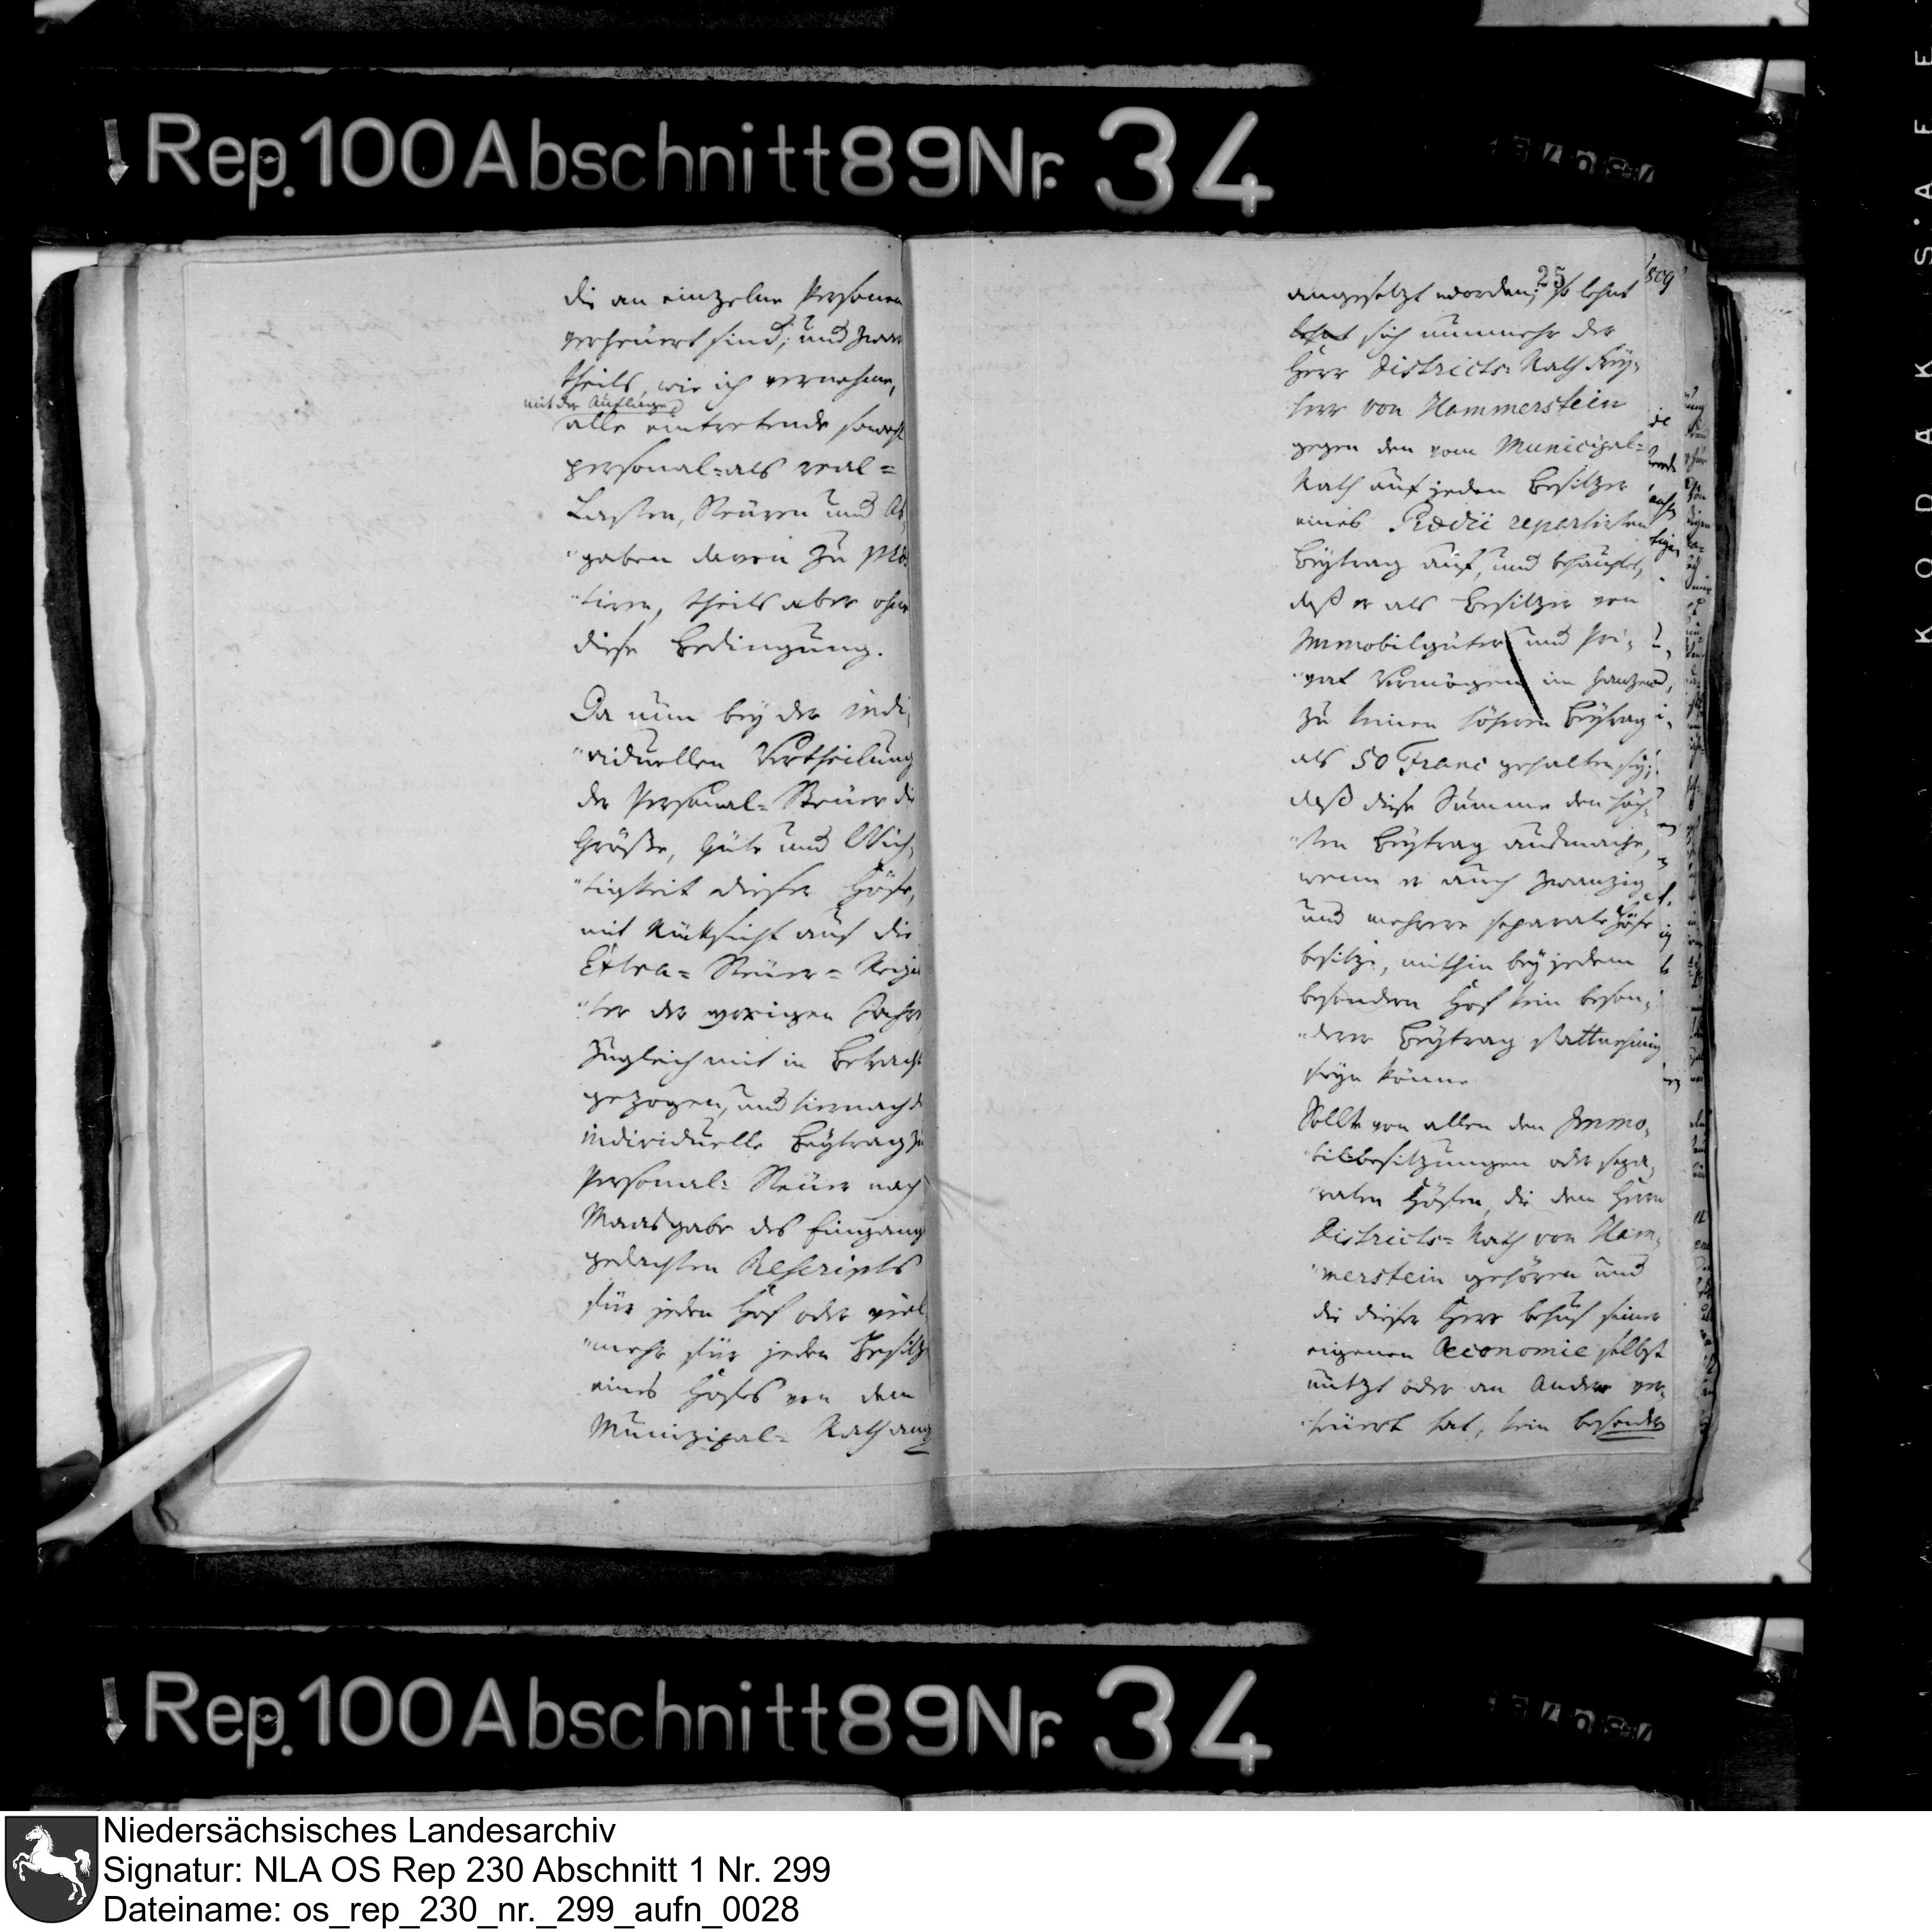 Rep. 100 Abschnitt 89 Nr. 34
die an einzelne Personen
verheuert sind; und zwar
theils, wie ich vernehme,
mit der Auflage
alle eintretende sowohl
personal- als real-
Lasten, Steuren und Ab,
"gaben davon zu präs
"tiren, theils aber ohne
diese Bedingung.
Da nun bey der indi,
"viduellen Vertheilung
der Personal-Steuer die
Größe, Güte und Wich,
"tigkeit dieser Höfe,
mit Rücksicht auf die
Extra-Steuer-Regis
"ter der vorigen Jahre
zugleich mit in Betracht
gezogen, und hiernach d
individuelle Beytrag zu
Personal-Steuer nach
Maasgabe des Eingangs
gedachten Rescripts
für jeden Hof oder viel
"mehr für jeden Besitz
eines Hofes von dem
Munizipal-Rath ang
25
1809
angesetzt worden; so lehnt
lehnt sich nunmehr der
Herr Districts-Rath Frey-
herr von Hammerstein
gegen den vom Municipal-
Rath auf jeden Besitzer
eines Prædii repartirten
Beytrag auf, und behauptet,
daß er als Besitzer von
Immobilgüter und Pri,
"vat Vermögen im Ganzen,
zu keinen höheren Beytrag
als 50 Franc gehalten sey;
daß diese Summe den höch,
"sten Beytrag ausmache,
wenn er auch zwanzig
und mehrere separate Höfe
besitze, mithin bey jedem
besondern Hof kein beson,
"derer Beytrag stattnehmig
seyn könne.
Sollte von allen den Immo,
"bilbesitzungen oder sepa,
"raten Höfen, die dem Herrn
Districts-Rath von Ham,
"merstein gehören und
die dieser Herr behuf seiner
eigenen Oeconomie selbst
nützt oder an Andere ver,
"heuert hat, kein besonder
KODAK S'AFE
Rep. 100 Abschnitt 89 Nr. 34
Niedersächsisches Landesarchiv
Signatur: NLA OS Rep 230 Abschnitt 1 Nr. 299
Dateiname: os_rep_230_nr._299_aufn_0028